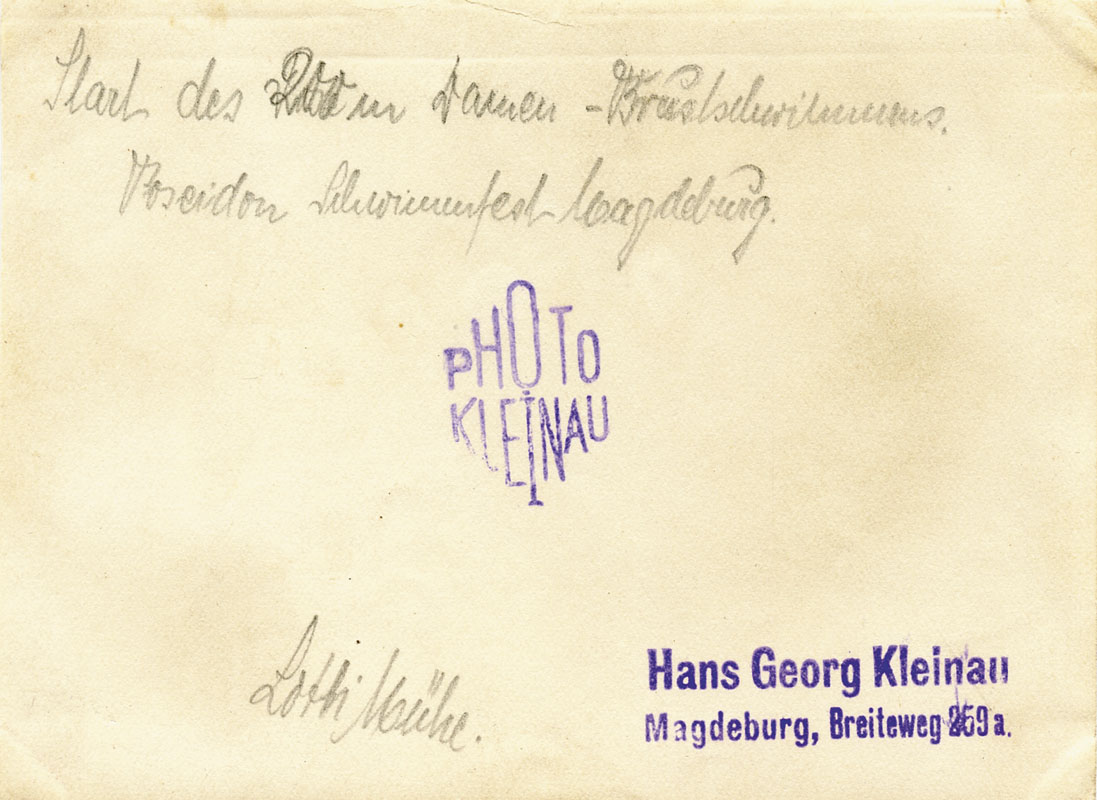 Start des 200 m Damen-Brustschwimmens.
Poseidon Schwimmfest Magdeburg.
PHOTO
KLEINAU
Lotti Mühe.
Hans Georg Kleinau
Magdeburg, Breiteweg 259a.